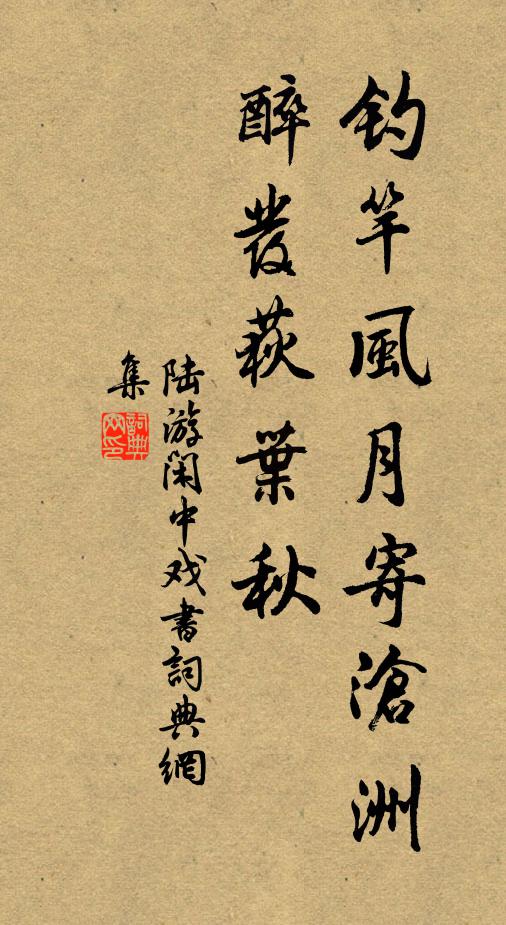 钓竿風月寄滄洲
醉發荻葉秋
陆游闲中戏書詞典網
集
詞典網印